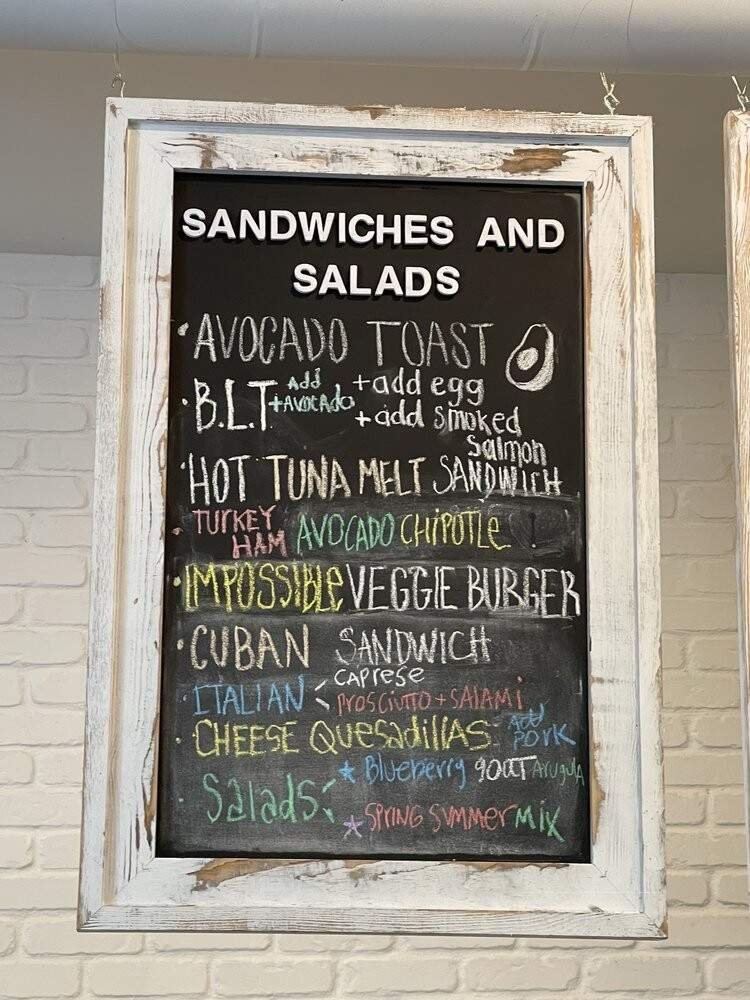 SANDWICHES AND
SALADS
AVOCADO TOAST
B.L.T +add egg
Add
+AVOCAdo
+add smoked
Salmon
HOT TUNA MELT SANDWICH
TURKEY
HAM AVOCADO CHIPOTLe
IMPOSSIBLe VEGGIE BURGER
CUBAN SANDWICH
CAPRESe
ITALIAN < PROSCIUTTO + SALAMi
CHEESE QUesadillAS - Add
PORK
* Blueberry goat Arugula
Salads:
* SPRING SUMMER MIX